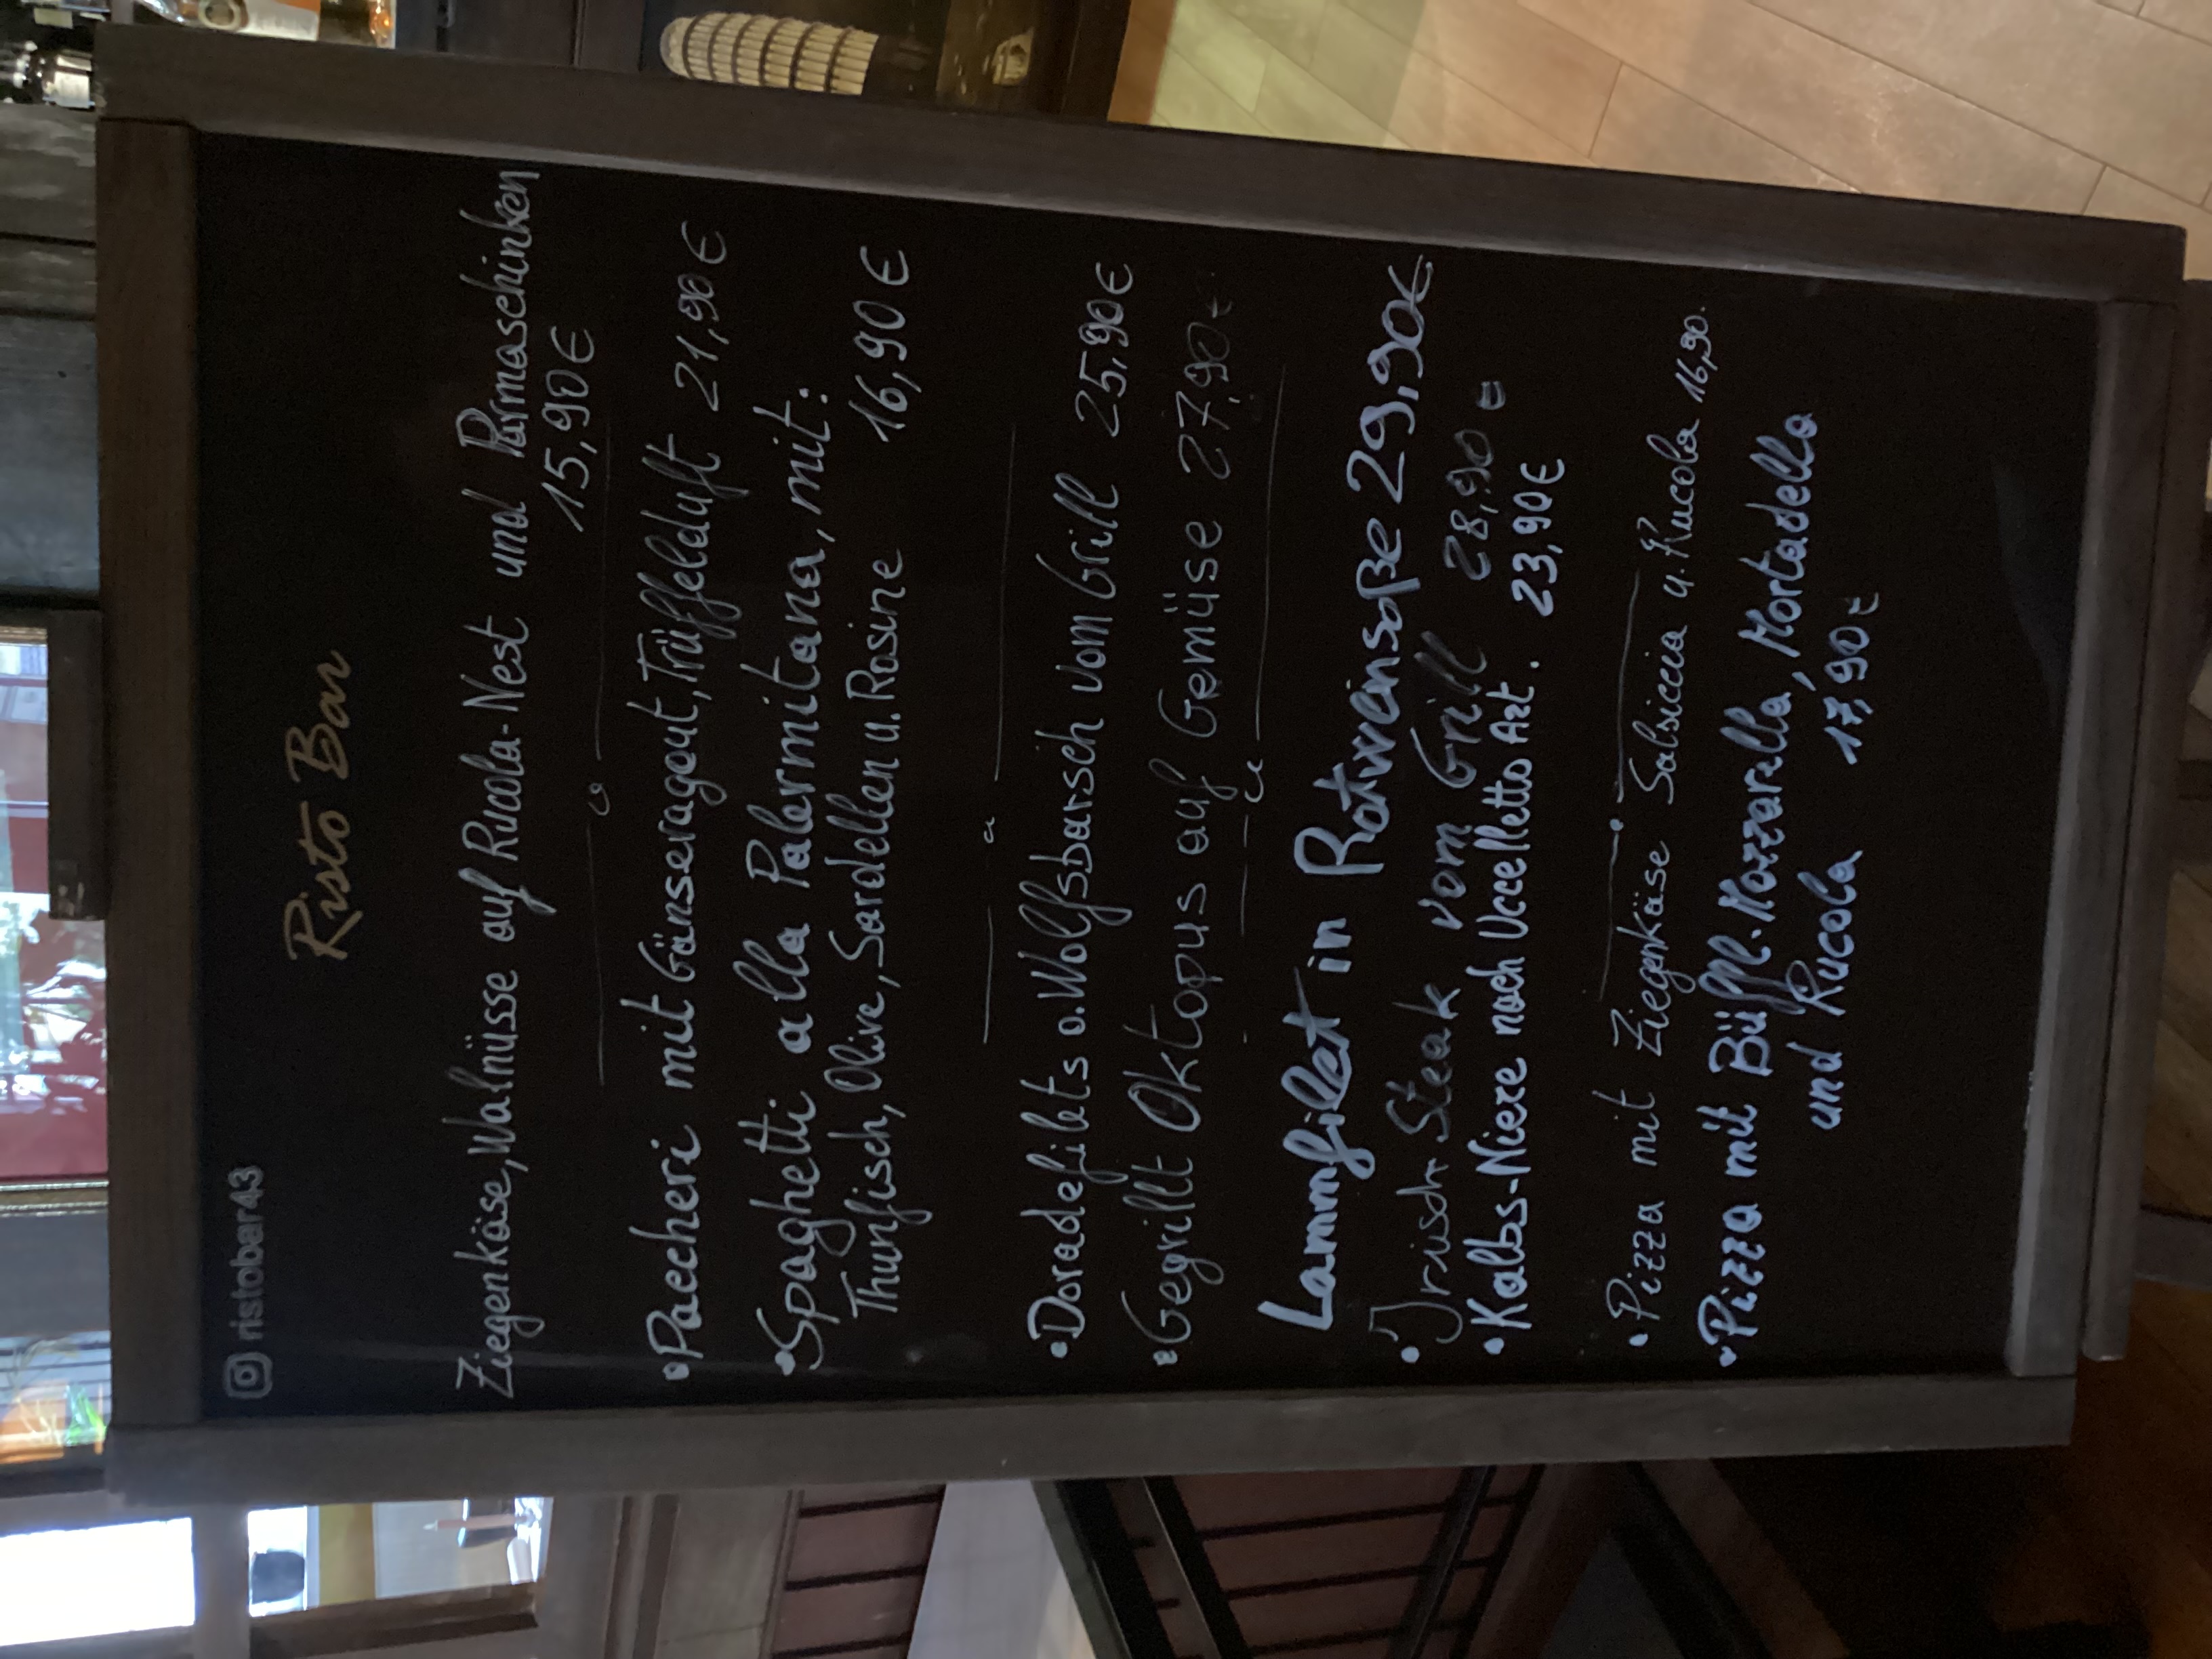 ristobar43
Risto Bar
Ziegenkäse, Walnüsse auf Rucola-Nest und Parmaschinken
15,90€
• Paccheri mit Gänseragout, Trüffelduft 21,90€
• Spaghetti alla Palermitana, mit:
Thunfisch, Olive, Sardellen u. Rosine 16,90€
• Doradefilets o. Wolfsbarsch vom Grill 25,90€
• Gegrillt Oktopus auf Gemüse 27,90€
Lammfilet in Rotweinsoße 29,90€
• Irisch Steak vom Grill 28,90€
• Kalbs-Niere nach Uccelletto Art. 23,90€
• Pizza mit Ziegenkäse Salsiccia u. Rucola 16,90.
• Pizza mit Büffl-Mozzarella, Mortadella
und Rucola 17,90€